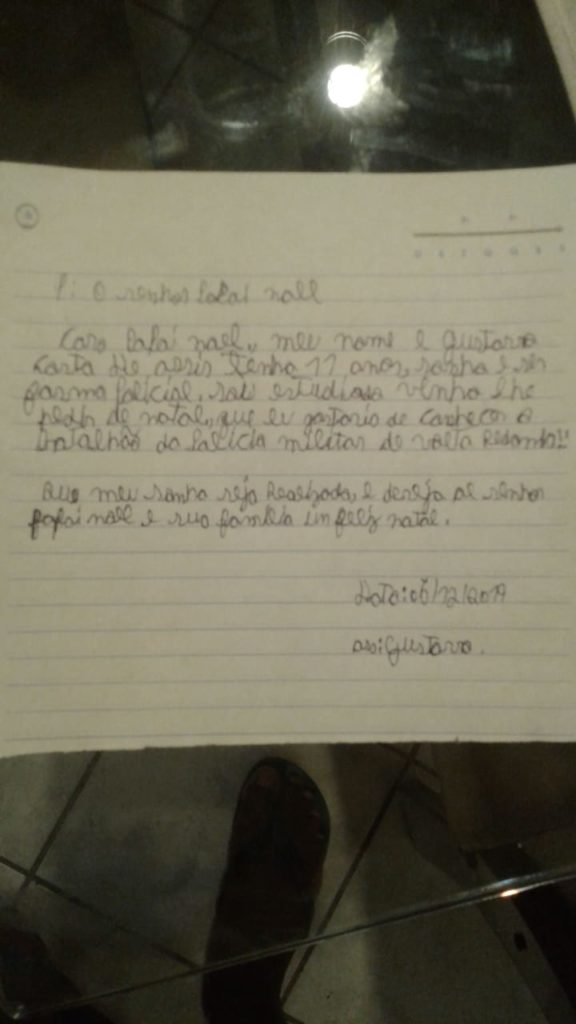 P: O senhor Papai noel
Caro Papai noel, meu nome e Gustavo
Costa de assis tenho 11 anos, sonho e ser
policial. sou estudioso venho lhe
pedir de natal, que eu gostario de conhecer o
Batalhão da Polícia militar de volta Redonda!!
Que meu sonho seja Realizado, e deseja ao senhor
papai noel e sua família um feliz natal.
Data: 06/12/2019
ass: Gustavo.